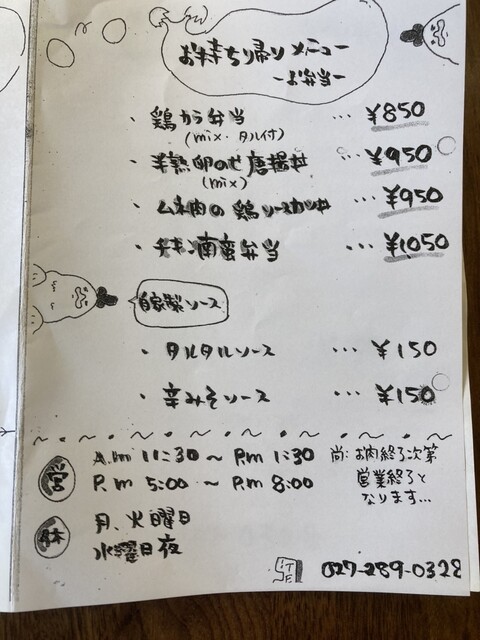 お持ち帰りメニュー
-お弁当-
・鶏から弁当 … ¥850
(mix・タル付)
・半熟卵のせ唐揚丼 … ¥950
(mix)
・ムネ肉の鶏ソースカツ丼 … ¥950
・チキン南蛮弁当 … ¥1050
自家製ソース
・タルタルソース … ¥150
・辛みそソース … ¥150
営 A.m 11:30 ～ P.m 1:30
P.m 5:00 ～ P.m 8:00
尚:お肉終了次第
営業終了と
なります…
休 月、火曜日
水曜日夜
027-289-0328